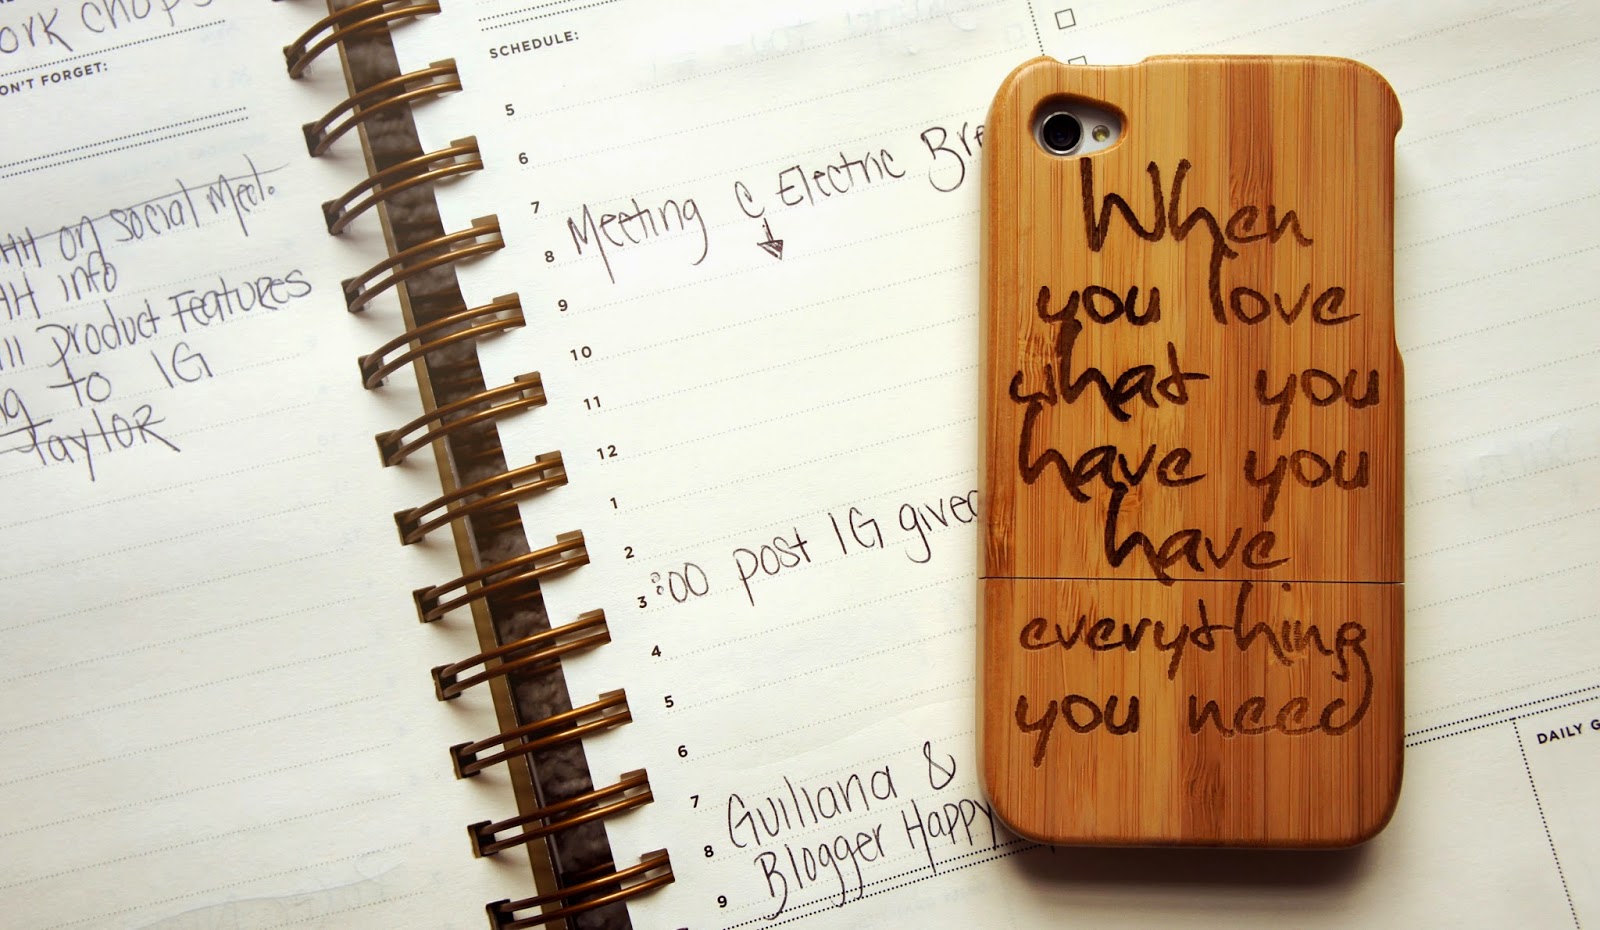 ork chops
ON'T FORGET:
HH on social Med.
HH info
ill product Features
ng to IG
Taylor
SCHEDULE:
5
6
7
8 Meeting c Electric Bre
9
10
11
12
1
2
3 :00 post IG givea
4
5
6
7 Guiliana &
8 Blogger Happy
9
When
you love
what you
have you
have
everything
you need
DAILY G